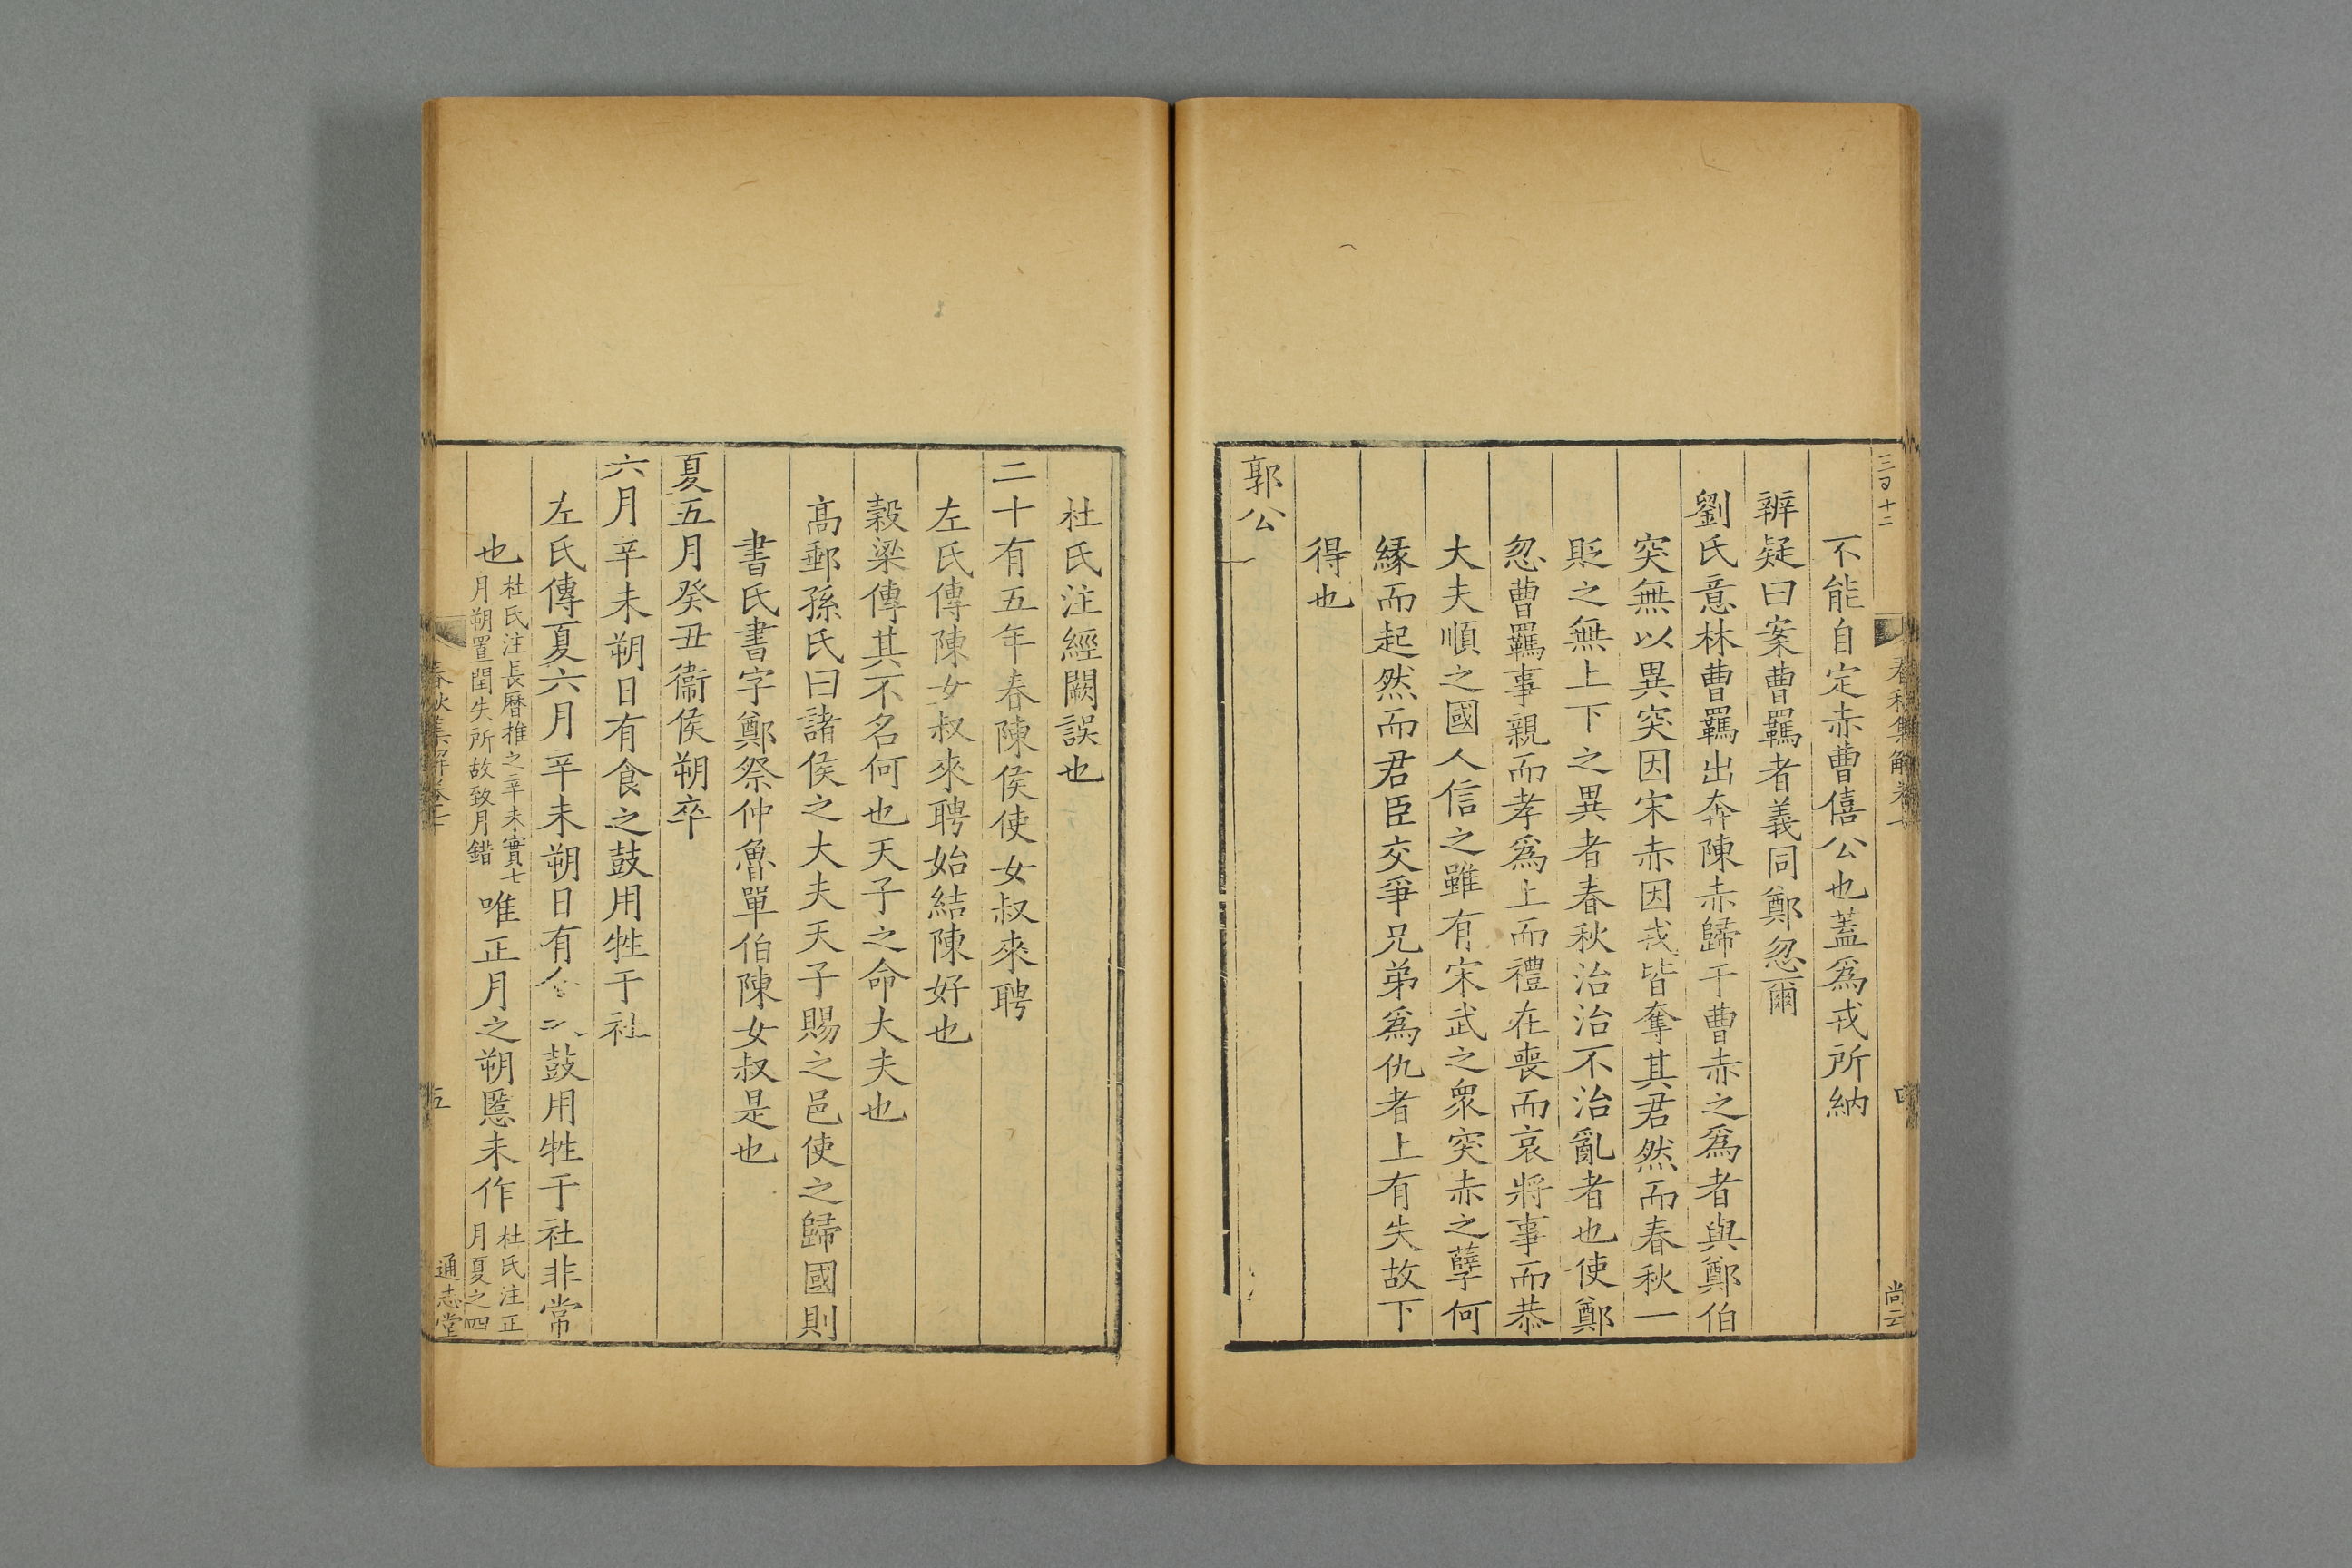 三百十二
春秋集解卷七
四
尚云
不能自定赤曹僖公也蓋爲戎所納
辨疑曰案曹羈者義同鄭忽爾
劉氏意林曹羈出奔陳赤歸于曹赤之爲者與鄭伯
突無以異突因宋赤因戎皆奪其君然而春秋一
貶之無上下之異者春秋治治不治亂者也使鄭
忽曹羈事親而孝爲上而禮在喪而哀將事而恭
大夫順之國人信之雖有宋武之衆突赤之孽何
縁而起然而君臣交爭兄弟爲仇者上有失故下
得也
郭公
杜氏注經闕誤也
二十有五年春陳侯使女叔來聘
左氏傳陳女叔來聘始結陳好也
穀梁傳其不名何也天子之命大夫也
髙郵孫氏曰諸侯之大夫天子賜之邑使之歸國則
書氏書字鄭祭仲魯單伯陳女叔是也
夏五月癸丑衞侯朔卒
六月辛未朔日有食之鼓用牲于社
左氏傳夏六月辛未朔日有鼓用牲于社非常
也杜氏注長曆推之辛未實七
月朔置閏失所故致月錯
唯正月之朔慝未作杜氏注正
月夏之四
春秋集解卷七
五
通志堂